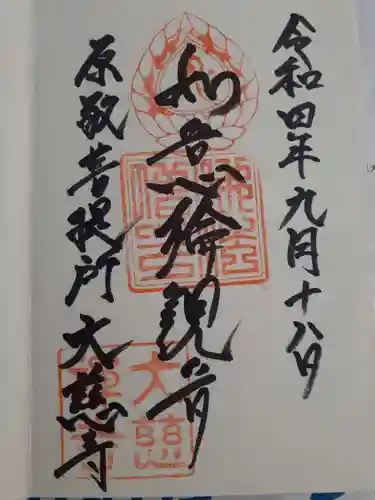 令和四年九月十八日
如意輪観音
原敬菩提所 大慈寺